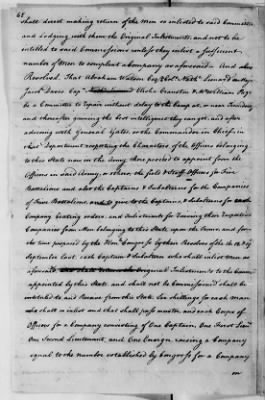 68
shall direct making return of the Men so inlisted to said Committee
and lodging with them the Original Inlistments and not to be
entitled to said Commissions unless they inlist a sufficient
number of Men to compleat a Company as aforesaid — And where
Resolved, That Abraham Watson Esq Colo. Leonard
James Davis Esq Elisha Cranston & Mr William Page
be a Committee to repair without delay to the Camp at, or near
and thereafter gaining the best intelligence they can get, and after
advising with General Gates, or the Commander in Chief in
that Department respecting the Characters of the Officers belonging
to this State now in the Army there proceed to appoint from the
Officers in said Army, or others, the full & Staff Officers for Five
Battalions and also the Captains & Subalterns for the Companies
of Five Battalions, and to give to the Captains, & Subalterns for each
Company beating orders, and Inlistments for raising their respective
Companies from Men belonging to this State, upon the terms, and for
the time proposed by the Honl. Congress by their Resolves of the 16th of
September last, each Captain & Subaltern who shall inlist Men as
aforesaid, Original Inlistment to the Comm
appointed by this State, and shall not be Commission'd shall be
intitled to and Receive from this State Six shillings for each man
who shall so inlist and that shall pass muster, and each Corps of
Officers for a Company consisting of One Captain, One First Lieut.
One Second Lieutenant, and One Ensign, raising a Company
equal to the number established by Congress for a Company